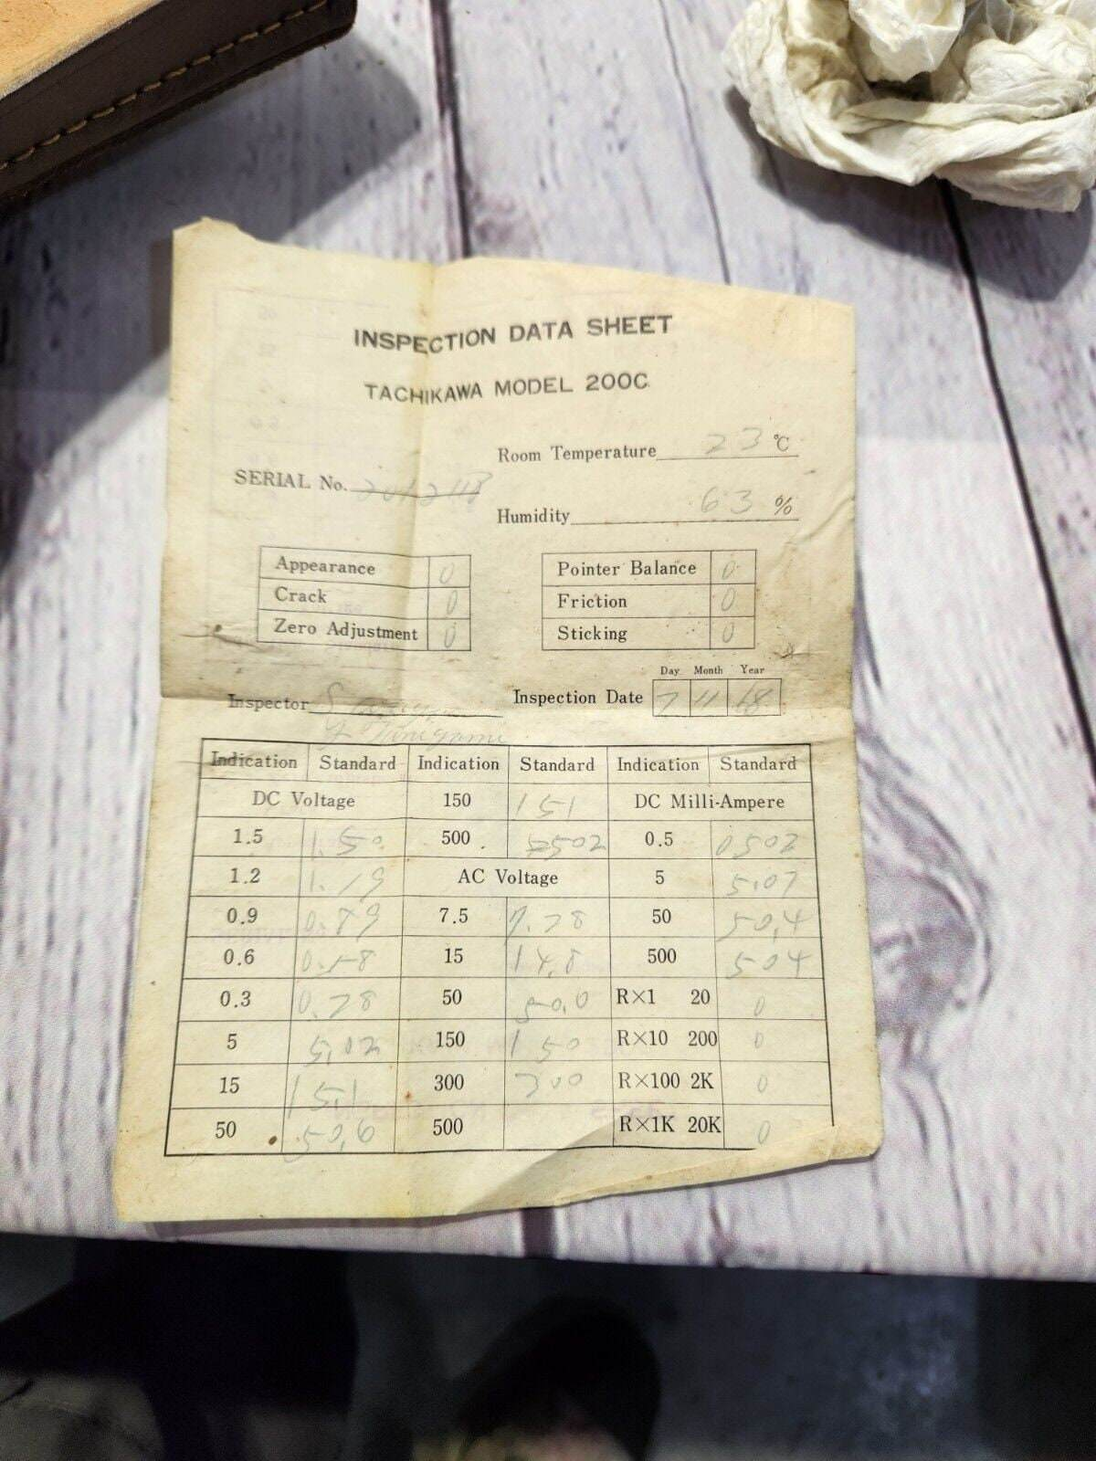 INSPECTION DATA SHEET
TACHIKAWA MODEL 200C
Room Temperature 23 °C
SERIAL No.
Humidity 63 %
Appearance 0 Pointer Balance 0
Crack 0 Friction 0
Zero Adjustment 0 Sticking 0
Day Month Year
Inspector Inspection Date 7 11 68
Indication Standard Indication Standard Indication Standard
DC Voltage 150 151 DC Milli-Ampere
1.5 1.50 500 502 0.5 0502
1.2 1.19 AC Voltage 5 5.07
0.9 0.89 7.5 7.78 50 50,4
0.6 0.58 15 14.8 500 504
0.3 0.28 50 50,0 R×1 20 0
5 5.02 150 150 R×10 200 0
15 15.1 300 300 R×100 2K 0
50 50,6 500 R×1K 20K 0